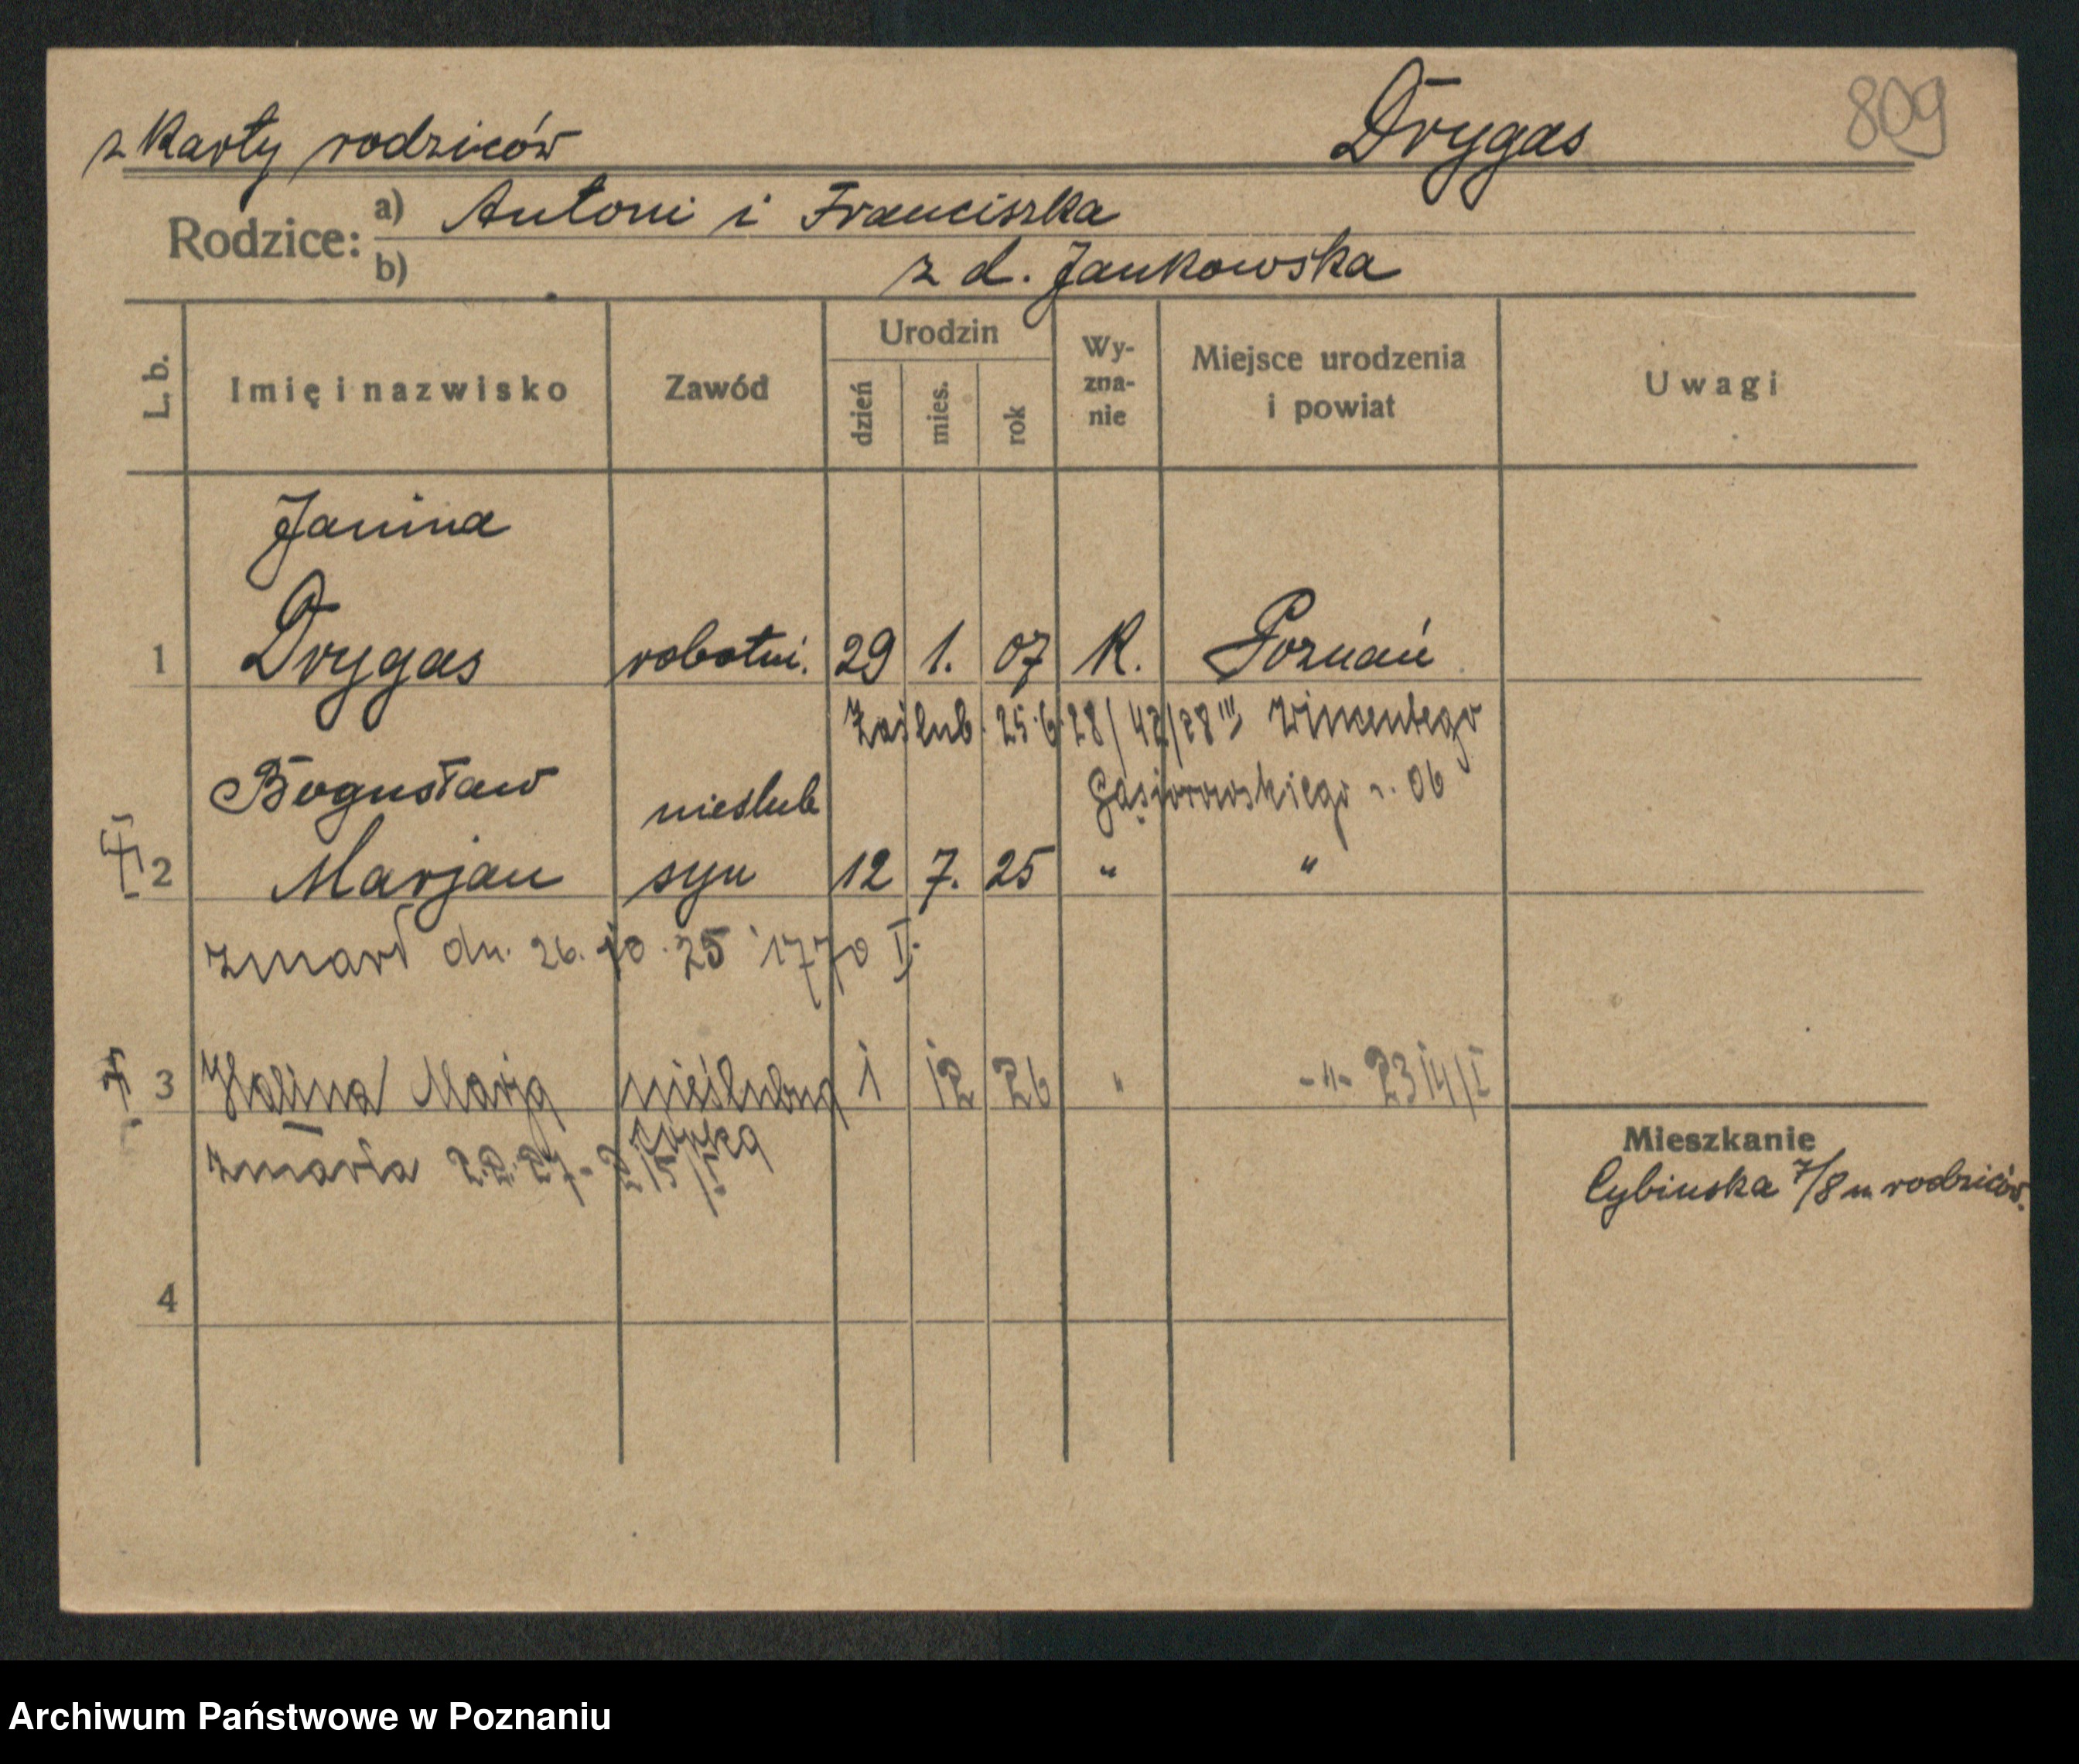 z karty rodziców Drygas 809
Rodzice: a) Antoni i Franciszka
b) z d. Jankowska
L. b. Imię i nazwisko Zawód Urodzin dzień mies. rok Wy-zna-nie Miejsce urodzenia i powiat Uwagi
Janina
1 Drygas robotni. 29 1. 07 K. Poznań
Zaślub. 25.6.28/ 42/28 III Wincentego
Bogusław nieślub Gąsiorowskiego r. 06
2 Marjan syn 12 7. 25 " "
zmarł dn. 26.10.25 1770 I.
3 Halina Marja nieślubna 1 12 26 " -"- 2314/I
córka
zmarła 2.2.27.
Mieszkanie
Cybinska 7/8 u rodziców.
4
Archiwum Państwowe w Poznaniu